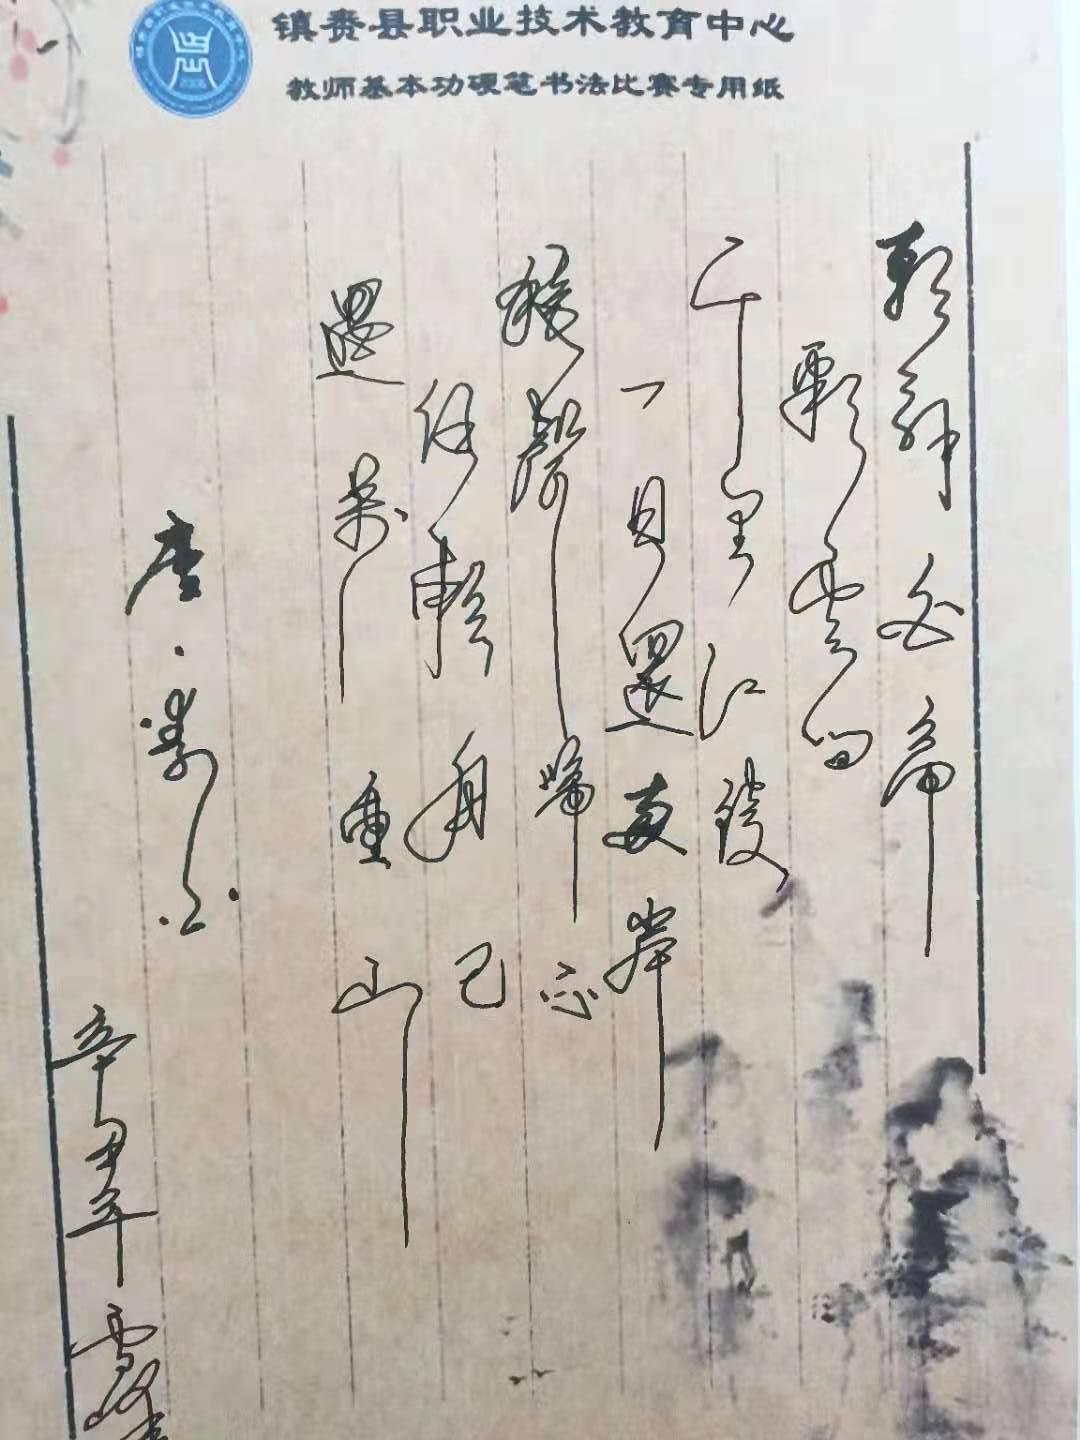 镇赉县职业技术教育中心
教师基本功硬笔书法比赛专用纸
朝辞白帝
彩云间
千里江陵
一日还两岸
猿声啼不
住轻舟已
过万重山
唐·李白
辛丑年